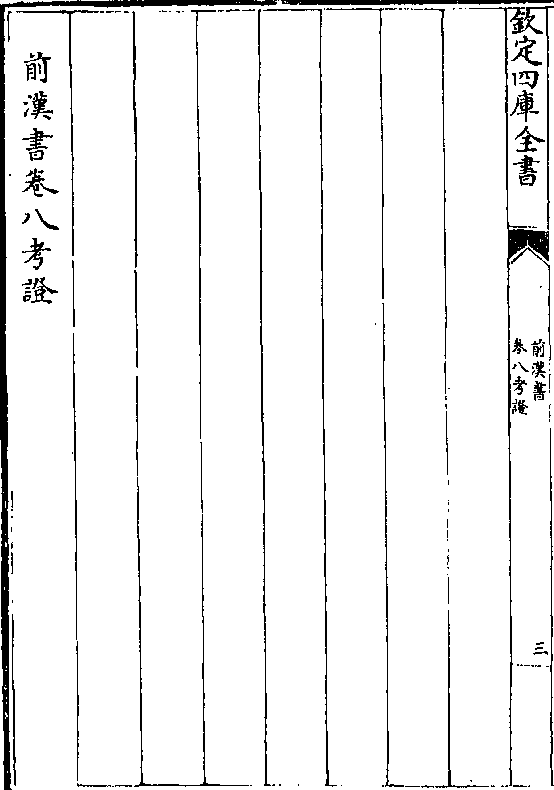 欽定四庫全書
前漢書
卷八考證
三
前漢書卷八考證